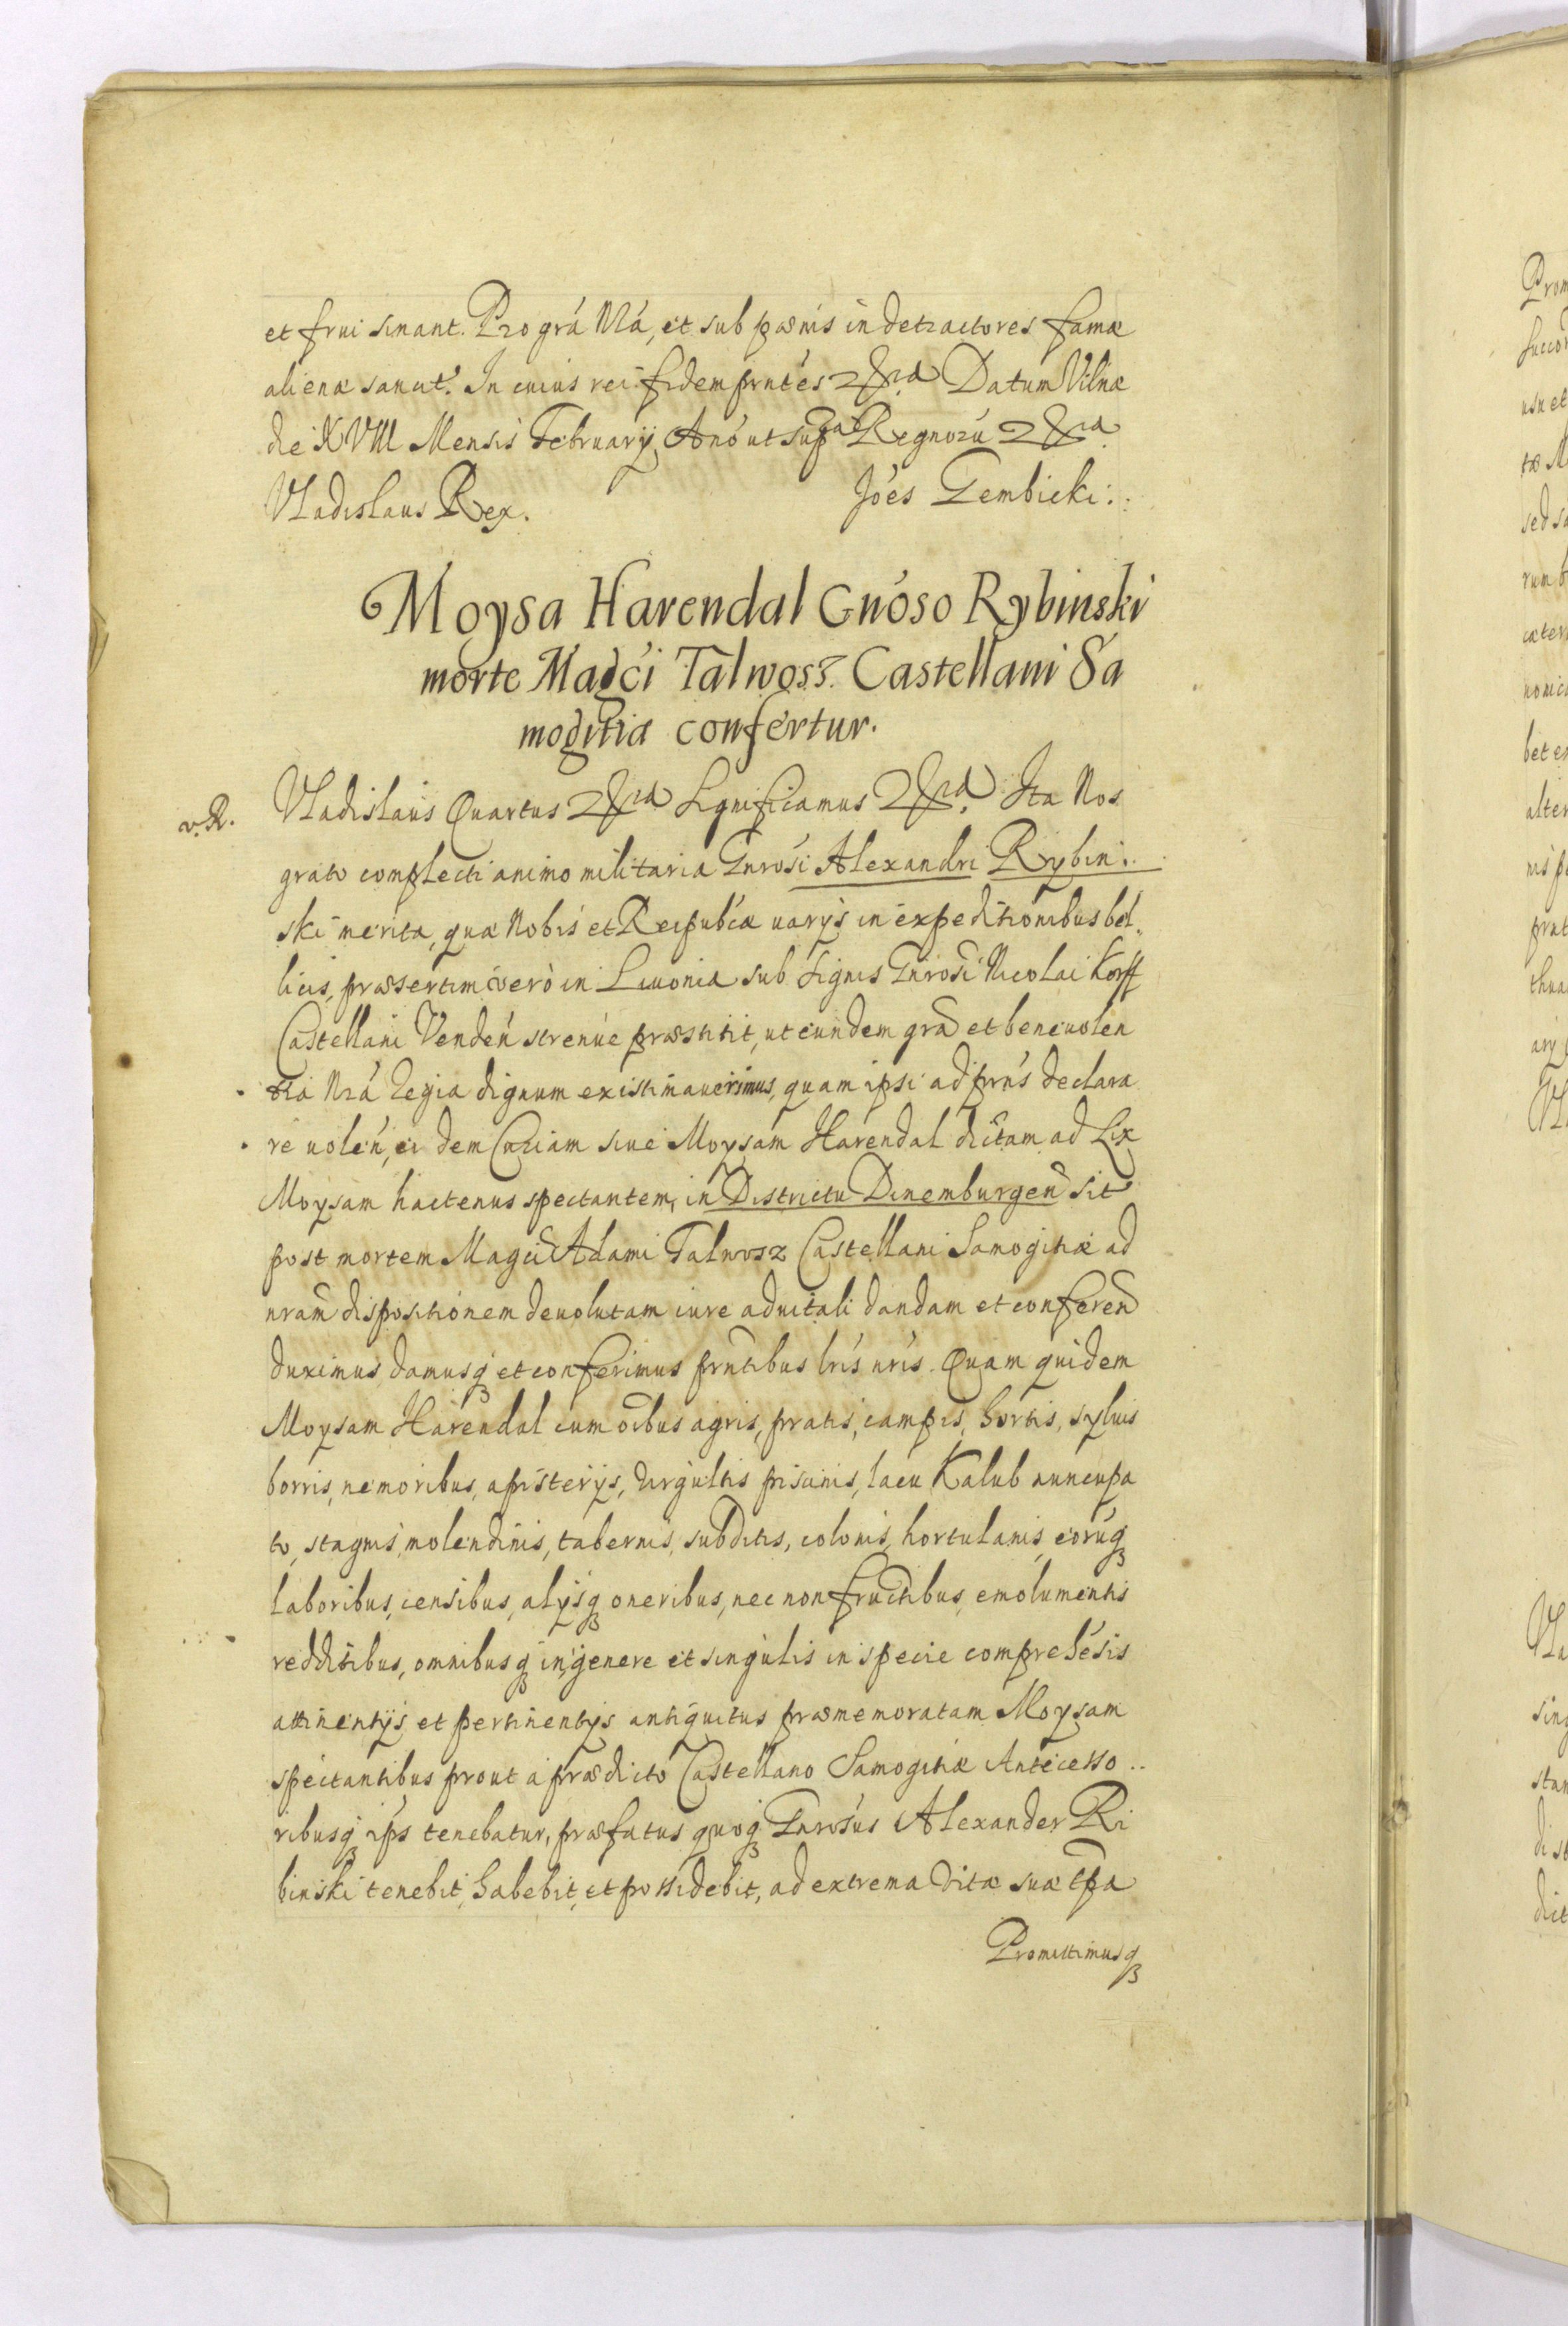 et frui sinant. Pro grá Nrá, et sub pœnis in detractores famæ
alienæ sancit. In cuius rei fidem prntés Datum Vilnæ
die XVIII Mensis February Anó ut supra Regnorú
Vladislaus Rex. Joés Gembicki:.
Moysa Harendal Gnóso Rybinski
morte Magci Talwosz Castellani Sa
mogitia confertur.
v. R. Vladislaus Quartus Significamus Ita Nos
grato complecti animo militaria Gnrosi Alexandri Rybin..
ski merita, quæ Nobis et Reipubcæ uarys in expeditionibus bel.
licis, præsertim vero in Liuonia sub signis Gnrosi Nicolai Korff
Castellani Venden strenúe præstitit, ut eundem gra et beneuolen
tia Nrá Regia dignum existimauerimus, quam ipsi ad prns declara
re uolen, ei dem siue Moysam Harendal dictam ad Lix
Moysam hactenus spectantem, in Districtu Dinemburgen sit
post mortem Magci Adami Talwosz Castellani Samogitiæ ad
nram dispositionem deuolutam iure aduitali dandam et conferen
duximus, damusq et conferimus prntibus lris nris. Quam quidem
Moysam Harendal cum oibus agris, pratis, campis, hortis, syluis
borris, nemoribus, apisterijs, uirgultis piscinis, lacu Kalub nuncupa
to, stagnis, molendinis, tabernis, subditis, colonis, hortulanis, eorúq
laboribus, censibus, alijsq oneribus, nec non fructibus, emolumentis
redditibus, omnibusq in genere et singulis in specie comprehésis
attinentijs et pertinentijs antiquitus præmemoratam Moysam
spectantibus prout a prædicto Castellano Samogitiæ Antecesso..
ribusq ips tenebatur, præfatus quoq Gnrosus Alexander Ri
binski tenebit, habebit, et possidebit, ad extrema vitæ suæ tpa
Promittimusq